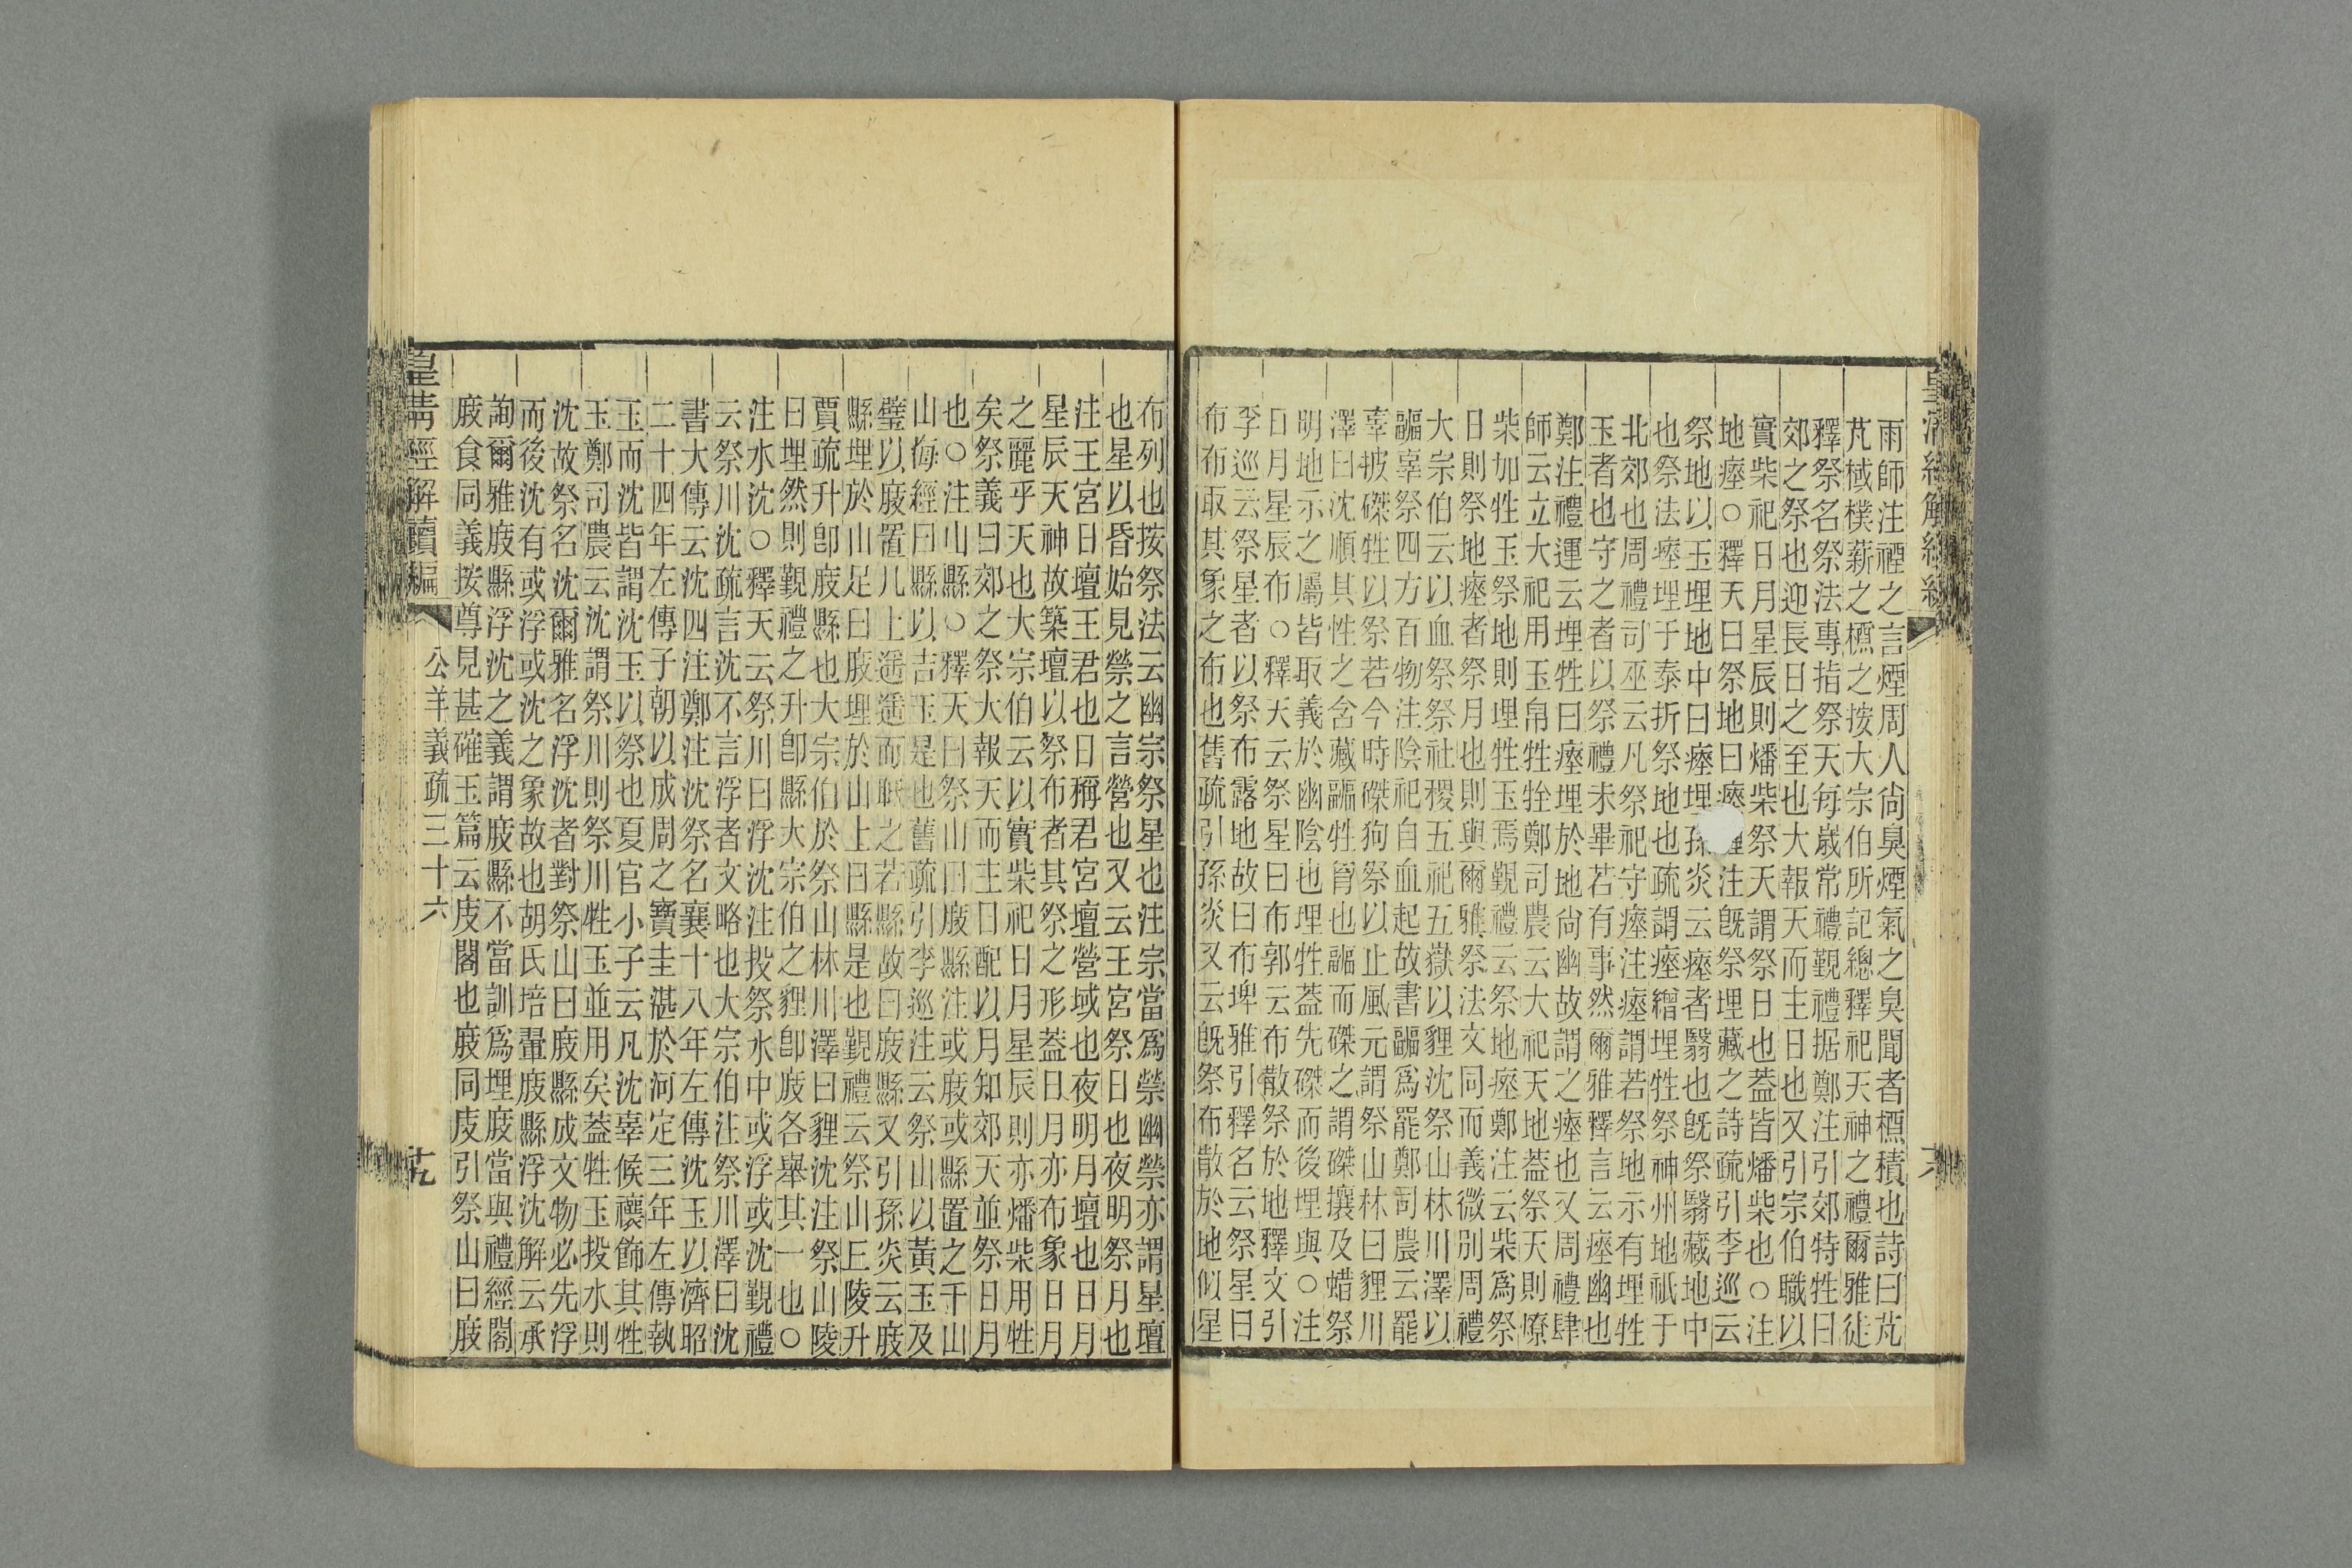 雨師注禋之言煙周人尙臭煙氣之臭聞者槱積也詩曰芃
芃棫樸薪之槱之按大宗伯所記總釋祀天神之禮爾雅徒
釋祭名祭法專指祭天每歲常禮覲禮据鄭注引郊特牲曰
郊之祭也迎長日之至也大報天而主日也又引宗伯職以
實柴祀日月星辰則燔柴祭天謂祭日也蓋皆燔柴也○注
地瘞○釋天曰祭地曰瘞薶注旣祭埋藏之詩疏引李巡云
祭地以玉埋地中曰瘞埋孫炎云瘞者翳也旣祭翳藏地中
也祭法瘞埋于泰折祭地也疏謂瘞繒埋牲祭神州地祇于
北郊也周禮司巫云凡祭祀守瘞注瘞謂若祭地示有埋牲
玉者也守之者以祭禮未畢若有事然爾雅釋言云瘞幽也
鄭注禮運云埋牲曰瘞埋於地尙幽故謂之瘞也又周禮肆
師云立大祀用玉帛牲牷鄭司農云大祀天地蓋祭天則燎
柴加牲玉祭地則埋牲玉焉覲禮云祭地瘞鄭注云柴爲祭
日則祭地瘞者祭月也則與爾雅祭法文同而義微別周禮
大宗伯云以血祭祭社稷五祀五嶽以貍沈祭山林川澤以
疈辜祭四方百物注陰祀自血起故書疈爲罷鄭司農云罷
辜披磔牲以祭若今時磔狗祭以止風元謂祭山林曰貍川
澤曰沈順其性之含藏疈牲胷也疈而磔之謂磔攘及蜡祭
明地示之屬皆取義於幽陰也理牲蓋先磔而後埋與○注
日月星辰布○釋天云祭星曰布郭云布散祭於地釋文引
李巡云祭星者以祭布露地故曰布埤雅引釋名云祭星曰
布布取其象之布也舊疏引孫炎又云旣祭布散於地似星
布列也按祭法云幽宗祭星也注宗當爲禜幽禜亦謂星壇
也星以昏始見禜之言營也又云王宮祭日也夜明祭月也
注王宮日壇王君也日稱君宮壇營域也夜明月壇也日月
星辰天神故築壇以祭布者其祭之形蓋日月亦布象日月
之麗乎天也大宗伯云以實柴祀日月星辰則亦燔柴用牲
矣祭義曰郊之祭大報天而主日配以月知郊天並祭日月
也○注山縣○釋天曰祭山曰庪縣注或庪或縣置之于山
山海經曰縣以吉玉是也舊疏引李巡注云祭山以黃玉及
璧以庪置几上遥遥而眂之若縣故曰庪縣又引孫炎云庪
縣埋於山足曰庪埋於山上曰縣是也覲禮云祭山丘陵升
賈疏升卽庪縣也大宗伯於祭山林川澤曰貍沈注祭山陵
曰埋然則覲禮之升卽縣大宗伯之貍卽庪各舉其一也○
注水沈○釋天云祭川曰浮沈注投祭水中或浮或沈覲禮
云祭川沈疏言沈不言浮者文略也大宗伯注祭川澤曰沈
書大傳云沈四注鄭注沈祭名襄十八年左傳沈玉以濟昭
二十四年左傳子朝以成周之寶圭湛於河定三年左傳執
玉而沈皆謂沈玉以祭也夏官小子云凡沈辜候禳飾其牲
玉鄭司農云沈謂祭川則祭川牲玉並用矣蓋牲玉投水則
沈故祭名沈爾雅名浮沈者對祭山曰庪縣成文物必先浮
而後沈有或浮或沈之象故也胡氏培翬庪縣浮沈解云承
詢爾雅庪縣浮沈之義謂庪縣不當訓爲埋庪當與禮經閣
庪食同義按尊見甚確玉篇云庋閣也庪同庋引祭山曰庪
皇淸經解續編
公羊義疏三十六
十九